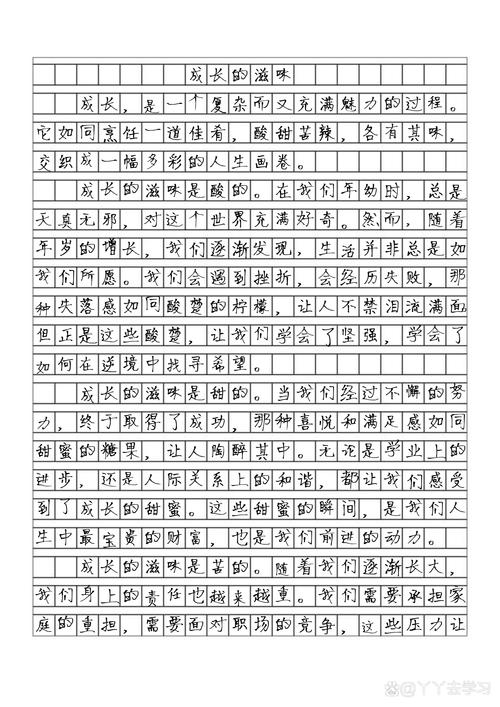 成长的滋味
成长，是一个复杂而又充满魅力的过程。
它如同烹任一道佳肴，酸甜苦辣，各有其味，
交织成一幅多彩的人生画卷。
成长的滋味是酸的。在我们年幼时，总是
天真无邪，对这个世界充满好奇。然而，随着
年岁的增长，我们逐渐发现，生活并非总是如
我们所愿。我们会遇到挫折，会经历失败，那
种失落感如同酸楚的柠檬，让人不禁泪流满面
但正是这些酸楚，让我们学会了坚强，学会了
如何在逆境中找寻希望。
成长的滋味是甜的。当我们经过不懈的努
力，终于取得了成功，那种喜悦和满足感如同
甜蜜的糖果，让人陶醉其中。无论是学业上的
进步，还是人际关系上的和谐，都让我们感受
到了成长的甜蜜。这些甜蜜的瞬间，是我们人
生中最宝贵的财富，也是我们前进的动力。
成长的滋味是苦的。随着我们逐渐长大，
我们身上的责任也越来越重。我们需要承担家
庭的重担，需要面对职场的竞争，这些压力让
@丫丫去学习